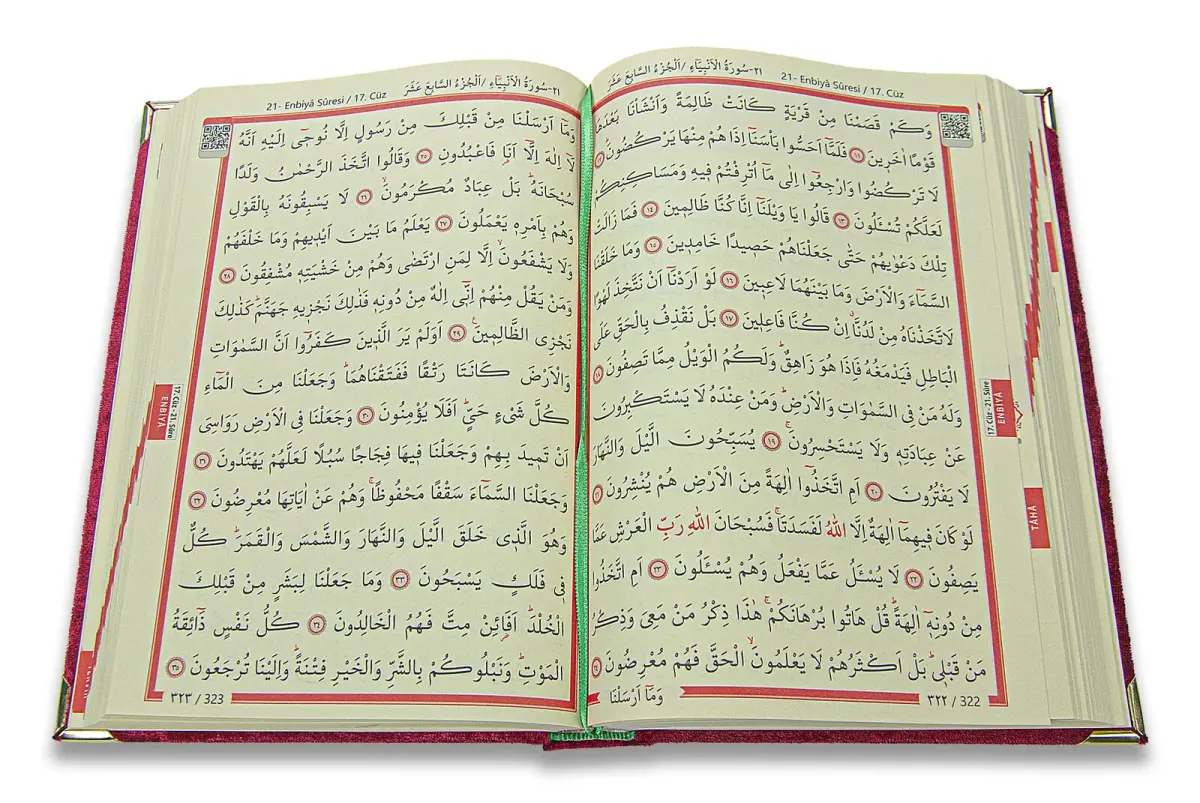 ٢١-سُورَةُ الْاَنْبِيَٓاءِ /اَلْجُزْءُ السَّابِعَ عَشَرَ 21- Enbiyâ Sûresi / 17. Cüz
وَكَمْ قَصَمْنَا مِنْ قَرْيَةٍ كَانَتْ ظَالِمَةً وَاَنْشَأْنَا بَعْدَهَا
قَوْمًا اٰخَرِينَ ﴿١١﴾ فَلَمَّٓا اَحَسُّوا بَأْسَنَٓا اِذَا هُمْ مِنْهَا يَرْكُضُونَ ﴿١٢﴾
لَا تَرْكُضُوا وَارْجِعُٓوا اِلٰى مَٓا اُتْرِفْتُمْ فِيهِ وَمَسَاكِنِكُمْ
لَعَلَّكُمْ تُسْـَٔلُونَ ﴿١٣﴾ قَالُوا يَا وَيْلَنَٓا اِنَّا كُنَّا ظَالِمِينَ ﴿١٤﴾ فَمَا زَالَتْ
تِلْكَ دَعْوٰيهُمْ حَتّٰى جَعَلْنَاهُمْ حَصِيدًا خَامِدِينَ ﴿١٥﴾ وَمَا خَلَقْنَا
السَّمَٓاءَ وَالْاَرْضَ وَمَا بَيْنَهُمَا لَاعِبِينَ ﴿١٦﴾ لَوْ اَرَدْنَٓا اَنْ نَتَّخِذَ لَهْوًا
لَاتَّخَذْنَاهُ مِنْ لَدُنَّاۗ اِنْ كُنَّا فَاعِلِينَ ﴿١٧﴾ بَلْ نَقْذِفُ بِالْحَقِّ عَلَى
الْبَاطِلِ فَيَدْمَغُهُ فَاِذَا هُوَ زَاهِقٌۜ وَلَكُمُ الْوَيْلُ مِمَّا تَصِفُونَ ﴿١٨﴾
وَلَهُ مَنْ فِي السَّمٰوَاتِ وَالْاَرْضِۜ وَمَنْ عِنْدَهُ لَا يَسْتَكْبِرُونَ
عَنْ عِبَادَتِهِ وَلَا يَسْتَحْسِرُونَۚ ﴿١٩﴾ يُسَبِّحُونَ الَّيْلَ وَالنَّهَارَ
لَا يَفْتُرُونَ ﴿٢٠﴾ اَمِ اتَّخَذُٓوا اٰلِهَةً مِنَ الْاَرْضِ هُمْ يُنْشِرُونَ ﴿٢١﴾
لَوْ كَانَ فِيهِمَٓا اٰلِهَةٌ اِلَّا اللّٰهُ لَفَسَدَتَاۚ فَسُبْحَانَ اللّٰهِ رَبِّ الْعَرْشِ عَمَّا
يَصِفُونَ ﴿٢٢﴾ لَا يُسْـَٔلُ عَمَّا يَفْعَلُ وَهُمْ يُسْـَٔلُونَ ﴿٢٣﴾ اَمِ اتَّخَذُوا
مِنْ دُونِهِٓ اٰلِهَةًۜ قُلْ هَاتُوا بُرْهَانَكُمْۚ هٰذَا ذِكْرُ مَنْ مَعِيَ وَذِكْرُ
مَنْ قَبْلِيۜ بَلْ اَكْثَرُهُمْ لَا يَعْلَمُونَۙ الْحَقَّ فَهُمْ مُعْرِضُونَ ﴿٢٤﴾
وَمَٓا اَرْسَلْنَا
٣٢٢ / 322
17. Cüz - 21. Sûre
ENBİYÂ
TÂHÂ
21- Enbiyâ Sûresi / 17. Cüz ٢١-سُورَةُ الْاَنْبِيَٓاءِ /اَلْجُزْءُ السَّابِعَ عَشَرَ
وَمَٓا اَرْسَلْنَا مِنْ قَبْلِكَ مِنْ رَسُولٍ اِلَّا نُوحِٓي اِلَيْهِ اَنَّهُ
لَٓا اِلٰهَ اِلَّٓا اَنَا۬ فَاعْبُدُونِ ﴿٢٥﴾ وَقَالُوا اتَّخَذَ الرَّحْمٰنُ وَلَدًا
سُبْحَانَهُۜ بَلْ عِبَادٌ مُكْرَمُونَۙ ﴿٢٦﴾ لَا يَسْبِقُونَهُ بِالْقَوْلِ
وَهُمْ بِاَمْرِهِ يَعْمَلُونَ ﴿٢٧﴾ يَعْلَمُ مَا بَيْنَ اَيْدِيهِمْ وَمَا خَلْفَهُمْ
وَلَا يَشْفَعُونَۙ اِلَّا لِمَنِ ارْتَضٰى وَهُمْ مِنْ خَشْيَتِهِ مُشْفِقُونَ ﴿٢٨﴾
وَمَنْ يَقُلْ مِنْهُمْ اِنِّٓي اِلٰهٌ مِنْ دُونِهِ فَذٰلِكَ نَجْزِيهِ جَهَنَّمَۜ كَذٰلِكَ
نَجْزِي الظَّالِمِينَ۟ ﴿٢٩﴾ اَوَلَمْ يَرَ الَّذِينَ كَفَرُٓوا اَنَّ السَّمٰوَاتِ
وَالْاَرْضَ كَانَتَا رَتْقًا فَفَتَقْنَاهُمَاۜ وَجَعَلْنَا مِنَ الْمَٓاءِ
كُلَّ شَيْءٍ حَيٍّۜ اَفَلَا يُؤْمِنُونَ ﴿٣٠﴾ وَجَعَلْنَا فِي الْاَرْضِ رَوَاسِيَ
اَنْ تَمِيدَ بِهِمْ وَجَعَلْنَا فِيهَا فِجَاجًا سُبُلًا لَعَلَّهُمْ يَهْتَدُونَ ﴿٣١﴾
وَجَعَلْنَا السَّمَٓاءَ سَقْفًا مَحْفُوظًاۚ وَهُمْ عَنْ اٰيَاتِهَا مُعْرِضُونَ ﴿٣٢﴾
وَهُوَ الَّذِي خَلَقَ الَّيْلَ وَالنَّهَارَ وَالشَّمْسَ وَالْقَمَرَۜ كُلٌّ
فِي فَلَكٍ يَسْبَحُونَ ﴿٣٣﴾ وَمَا جَعَلْنَا لِبَشَرٍ مِنْ قَبْلِكَ
الْخُلْدَۜ اَفَا۬ئِنْ مِتَّ فَهُمُ الْخَالِدُونَ ﴿٣٤﴾ كُلُّ نَفْسٍ ذَٓائِقَةُ
الْمَوْتِۜ وَنَبْلُوكُمْ بِالشَّرِّ وَالْخَيْرِ فِتْنَةًۜ وَاِلَيْنَا تُرْجَعُونَ ﴿٣٥﴾
٣٢٣ / 323
17. Cüz - 21. Sûre
ENBİYÂ